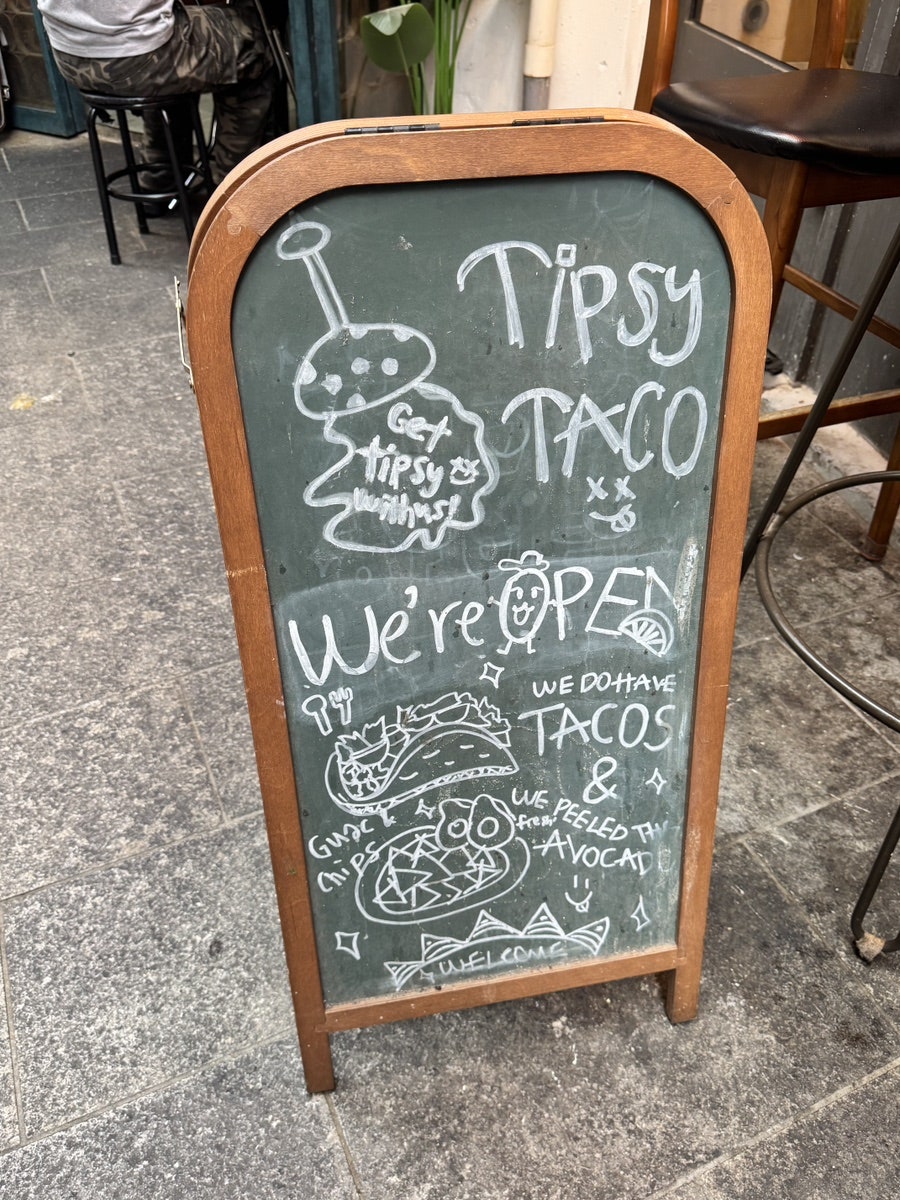 Tipsy
TACO
Get
tipsy
with us!
We're OPEN
WE DO HAVE
TACOS
&
WE PEELED
fresh
AVOCAD
Guac &
chips
WELCOME